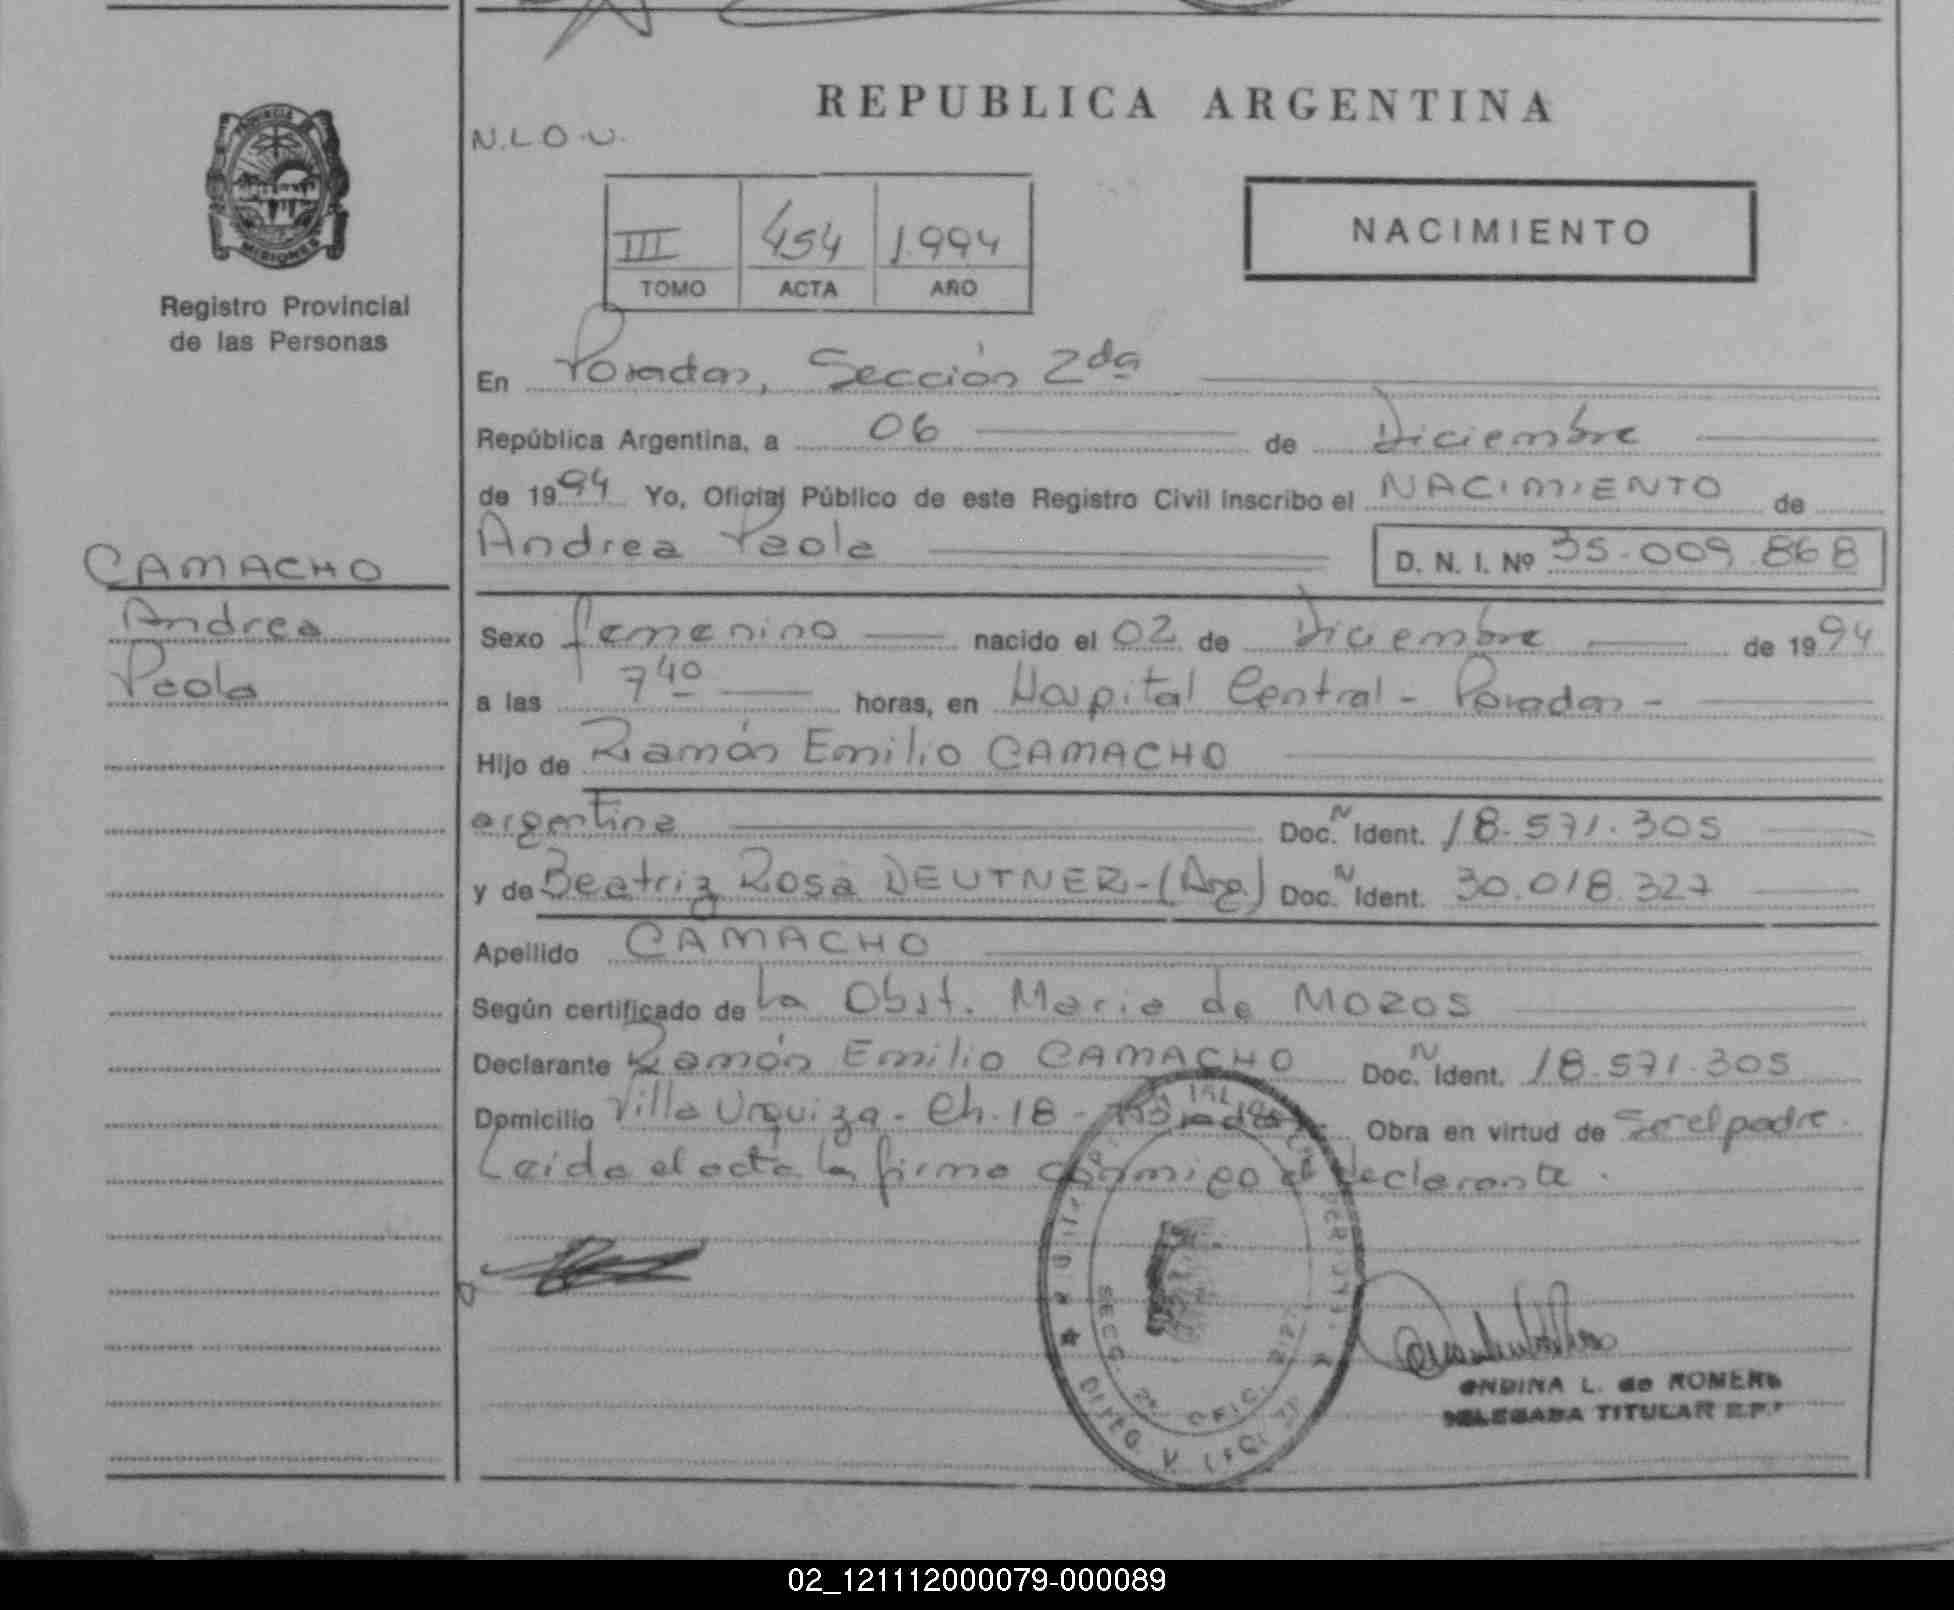 REPUBLICA ARGENTINA
N.L.O.U.
PROVINCIA
MISIONES
Registro Provincial
de las Personas
III 454 1.994
TOMO ACTA AÑO
NACIMIENTO
En Posadas, Sección 2da
República Argentina, a 06 de Diciembre
de 1994 Yo, Oficial Público de este Registro Civil inscribo el NACIMIENTO de
Andrea Paola D. N. I. Nº 35.009.868
CAMACHO
Andrea
Paola
Sexo femenino nacido el 02 de Diciembre de 1994
a las 7 40 horas, en Hospital Central - Posadas -
Hijo de Ramón Emilio CAMACHO
argentina Doc. N Ident. 18.571.305
y de Beatriz Rosa DEUTNER - (Arg.) Doc. N Ident. 30.018.327
Apellido CAMACHO
Según certificado de la Obst. Maria de MOROS
Declarante Ramón Emilio CAMACHO Doc. N Ident. 18.571.305
Domicilio Villa Urquiza - Ch. 18 - Posadas Obra en virtud de Ser el padre.
Leida el acta la firma conmigo el declarante.
SECC. 2ª OFIC.
ONDINA L. de ROMERO
DELEGADA TITULAR R.P.P
02_121112000079-000089